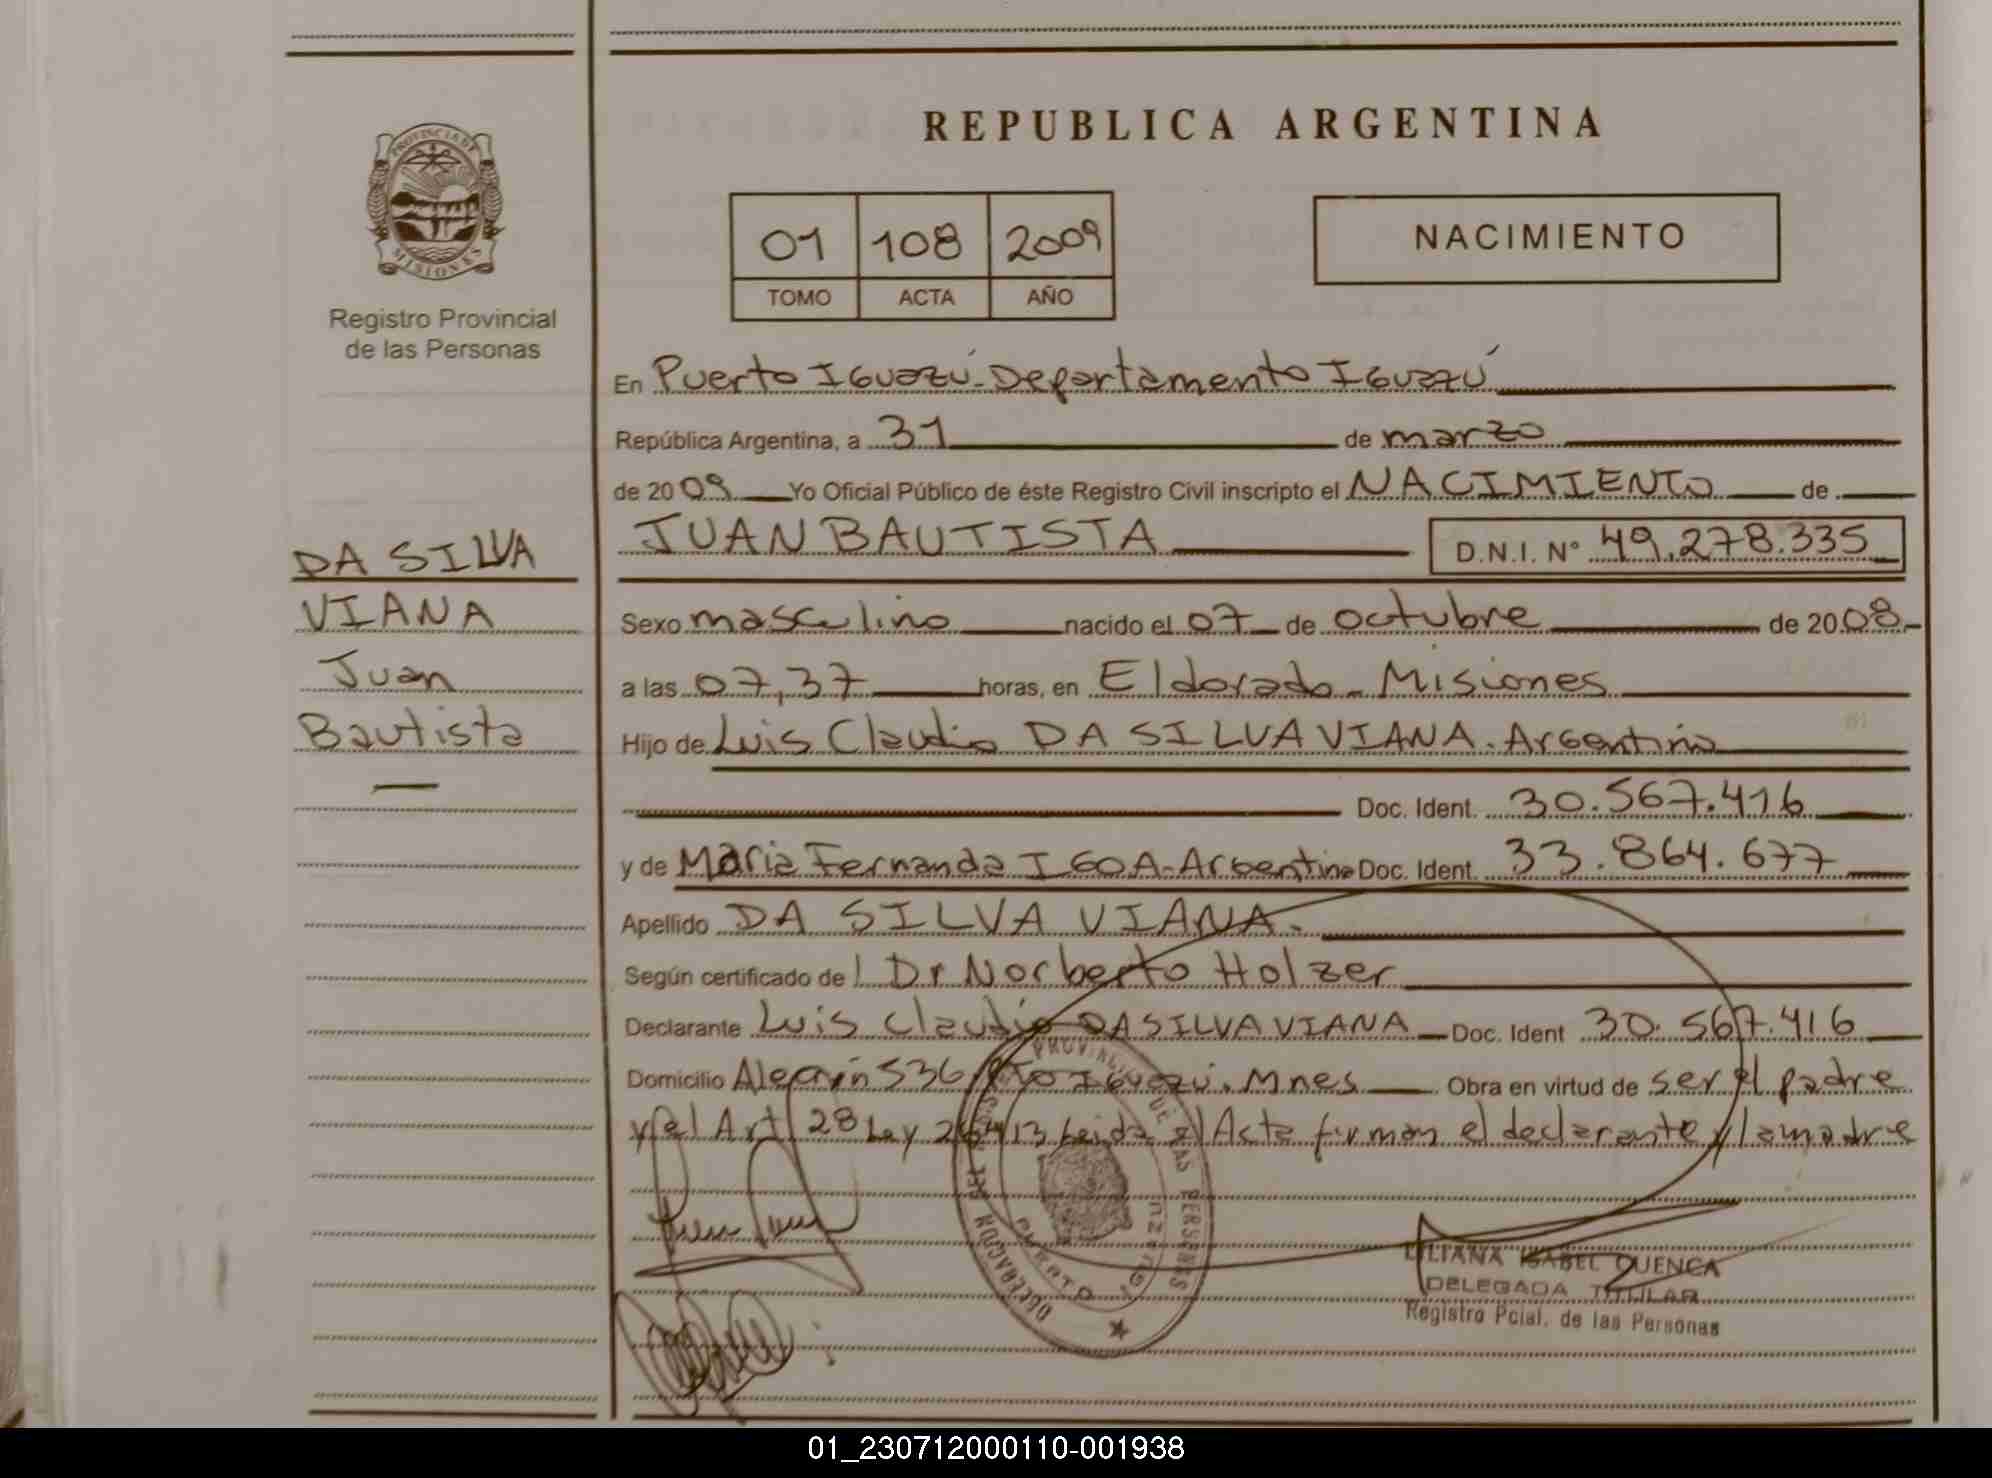 PROVINCIA DE
MISIONES
Registro Provincial
de las Personas
DA SILVA
VIANA
Juan
Bautista
REPUBLICA ARGENTINA
01 108 2009
TOMO ACTA AÑO
NACIMIENTO
En Puerto Iguazú - Departamento Iguazú
República Argentina, a 31 de marzo
de 2009 Yo Oficial Público de éste Registro Civil inscripto el NACIMIENTO de
JUAN BAUTISTA D.N.I. N° 49.278.335
Sexo masculino nacido el 07 de octubre de 2008.-
a las 07,37 horas, en Eldorado - Misiones
Hijo de Luis Claudio DA SILVA VIANA. Argentino
Doc. Ident. 30.567.416
y de Maria Fernanda IGOA - Argentina Doc. Ident. 33.864.677
Apellido DA SILVA VIANA.
Según certificado de l Dr Norberto Holzer
Declarante Luis Claudio DA SILVA VIANA Doc. Ident 30.567.416
Domicilio Alecrín 536 Pto Iguazú. Mnes Obra en virtud de ser el padre
y el Art 28 Ley 26413 Leida el Acta firman el declarante y la madre
LILIANA ISABEL CUENCA
DELEGADA TITULAR
Registro Pcial. de las Personas
01_230712000110-001938